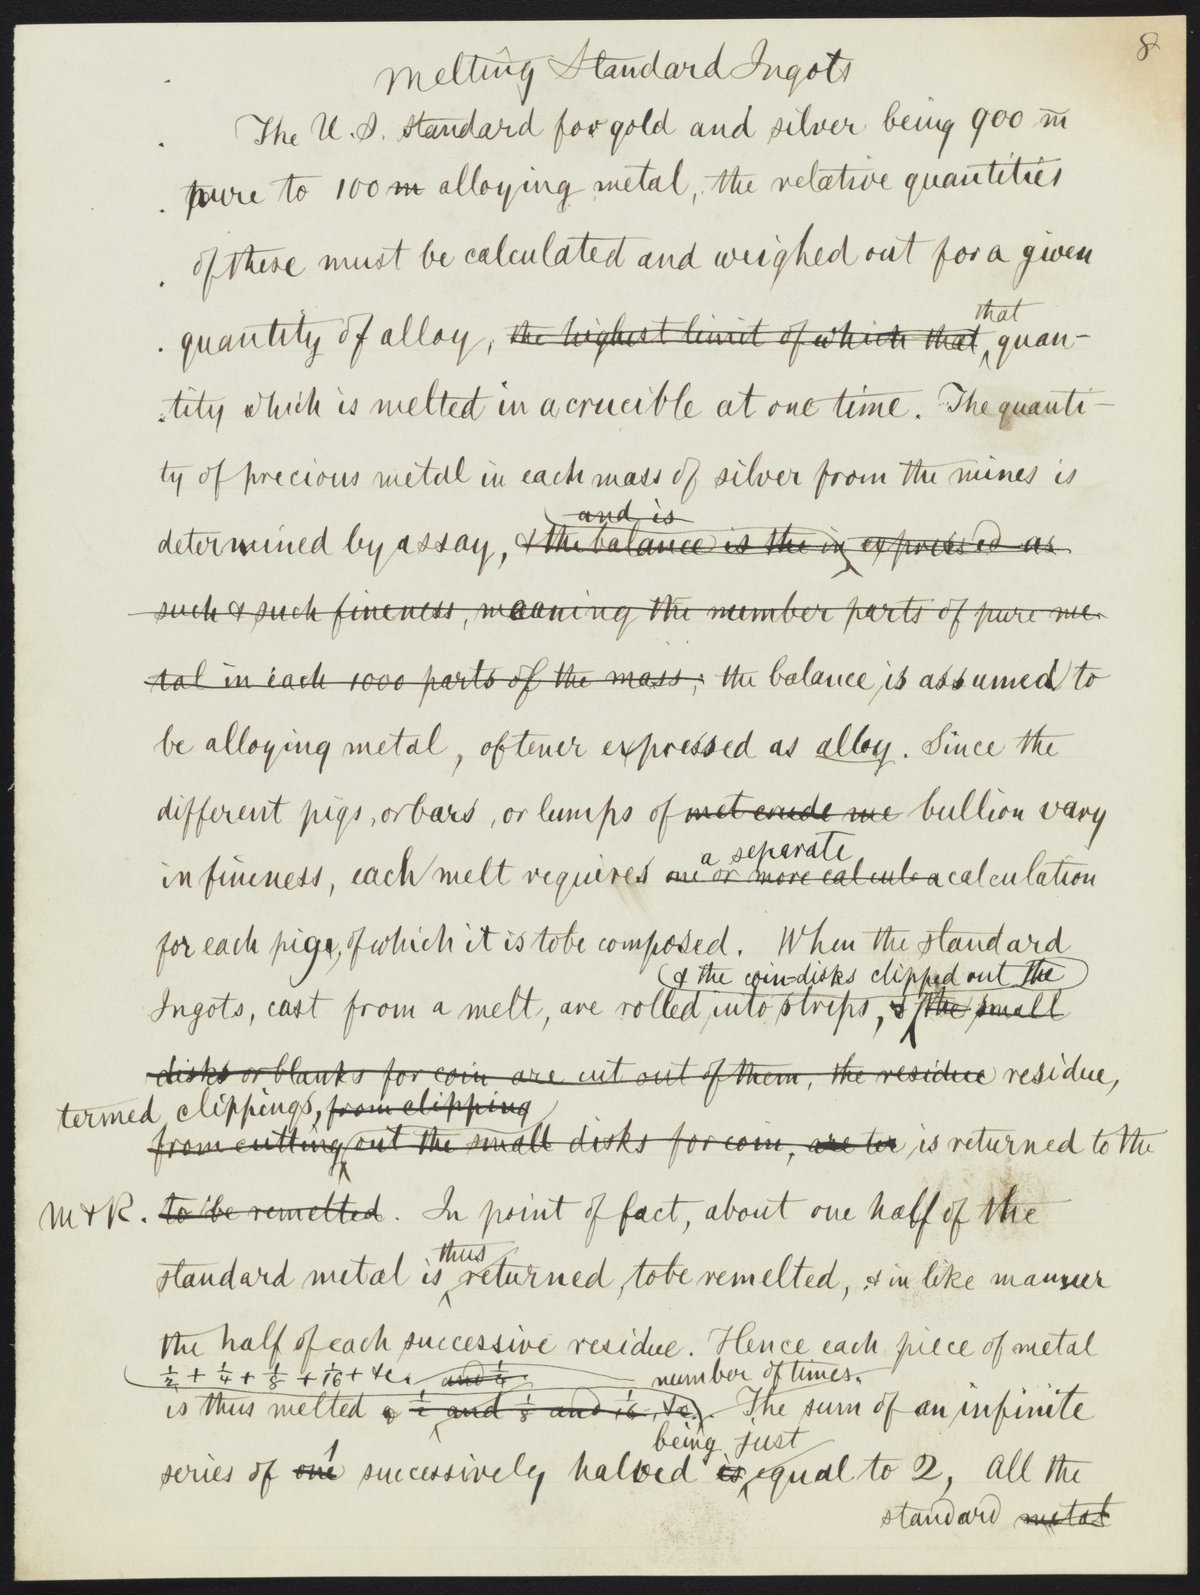 8
Melting Standard Ingots
The U. S. standard for gold and silver being 900 m
pure to 100 m alloying metal, the relative quantities
of these must be calculated and weighed out for a given
that
quantity of alloy, the highest limit of which that quan-
tity which is melted in a crucible at one time. The quanti-
ty of precious metal in each mass of silver from the mines is
and is
determined by assay, & the balance is the in expressed as
such & such fineness, meaning the number parts of pure me-
tal in each 1000 parts of the mass; the balance is assumed to
be alloying metal, oftener expressed as alloy. Since the
different pigs, or bars, or lumps of met crude me bullion vary
a separate
in fineness, each melt requires one or more calcula calculation
for each pig, of which it is to be composed. When the standard
& the coin-disks clipped out the
Ingots, cast from a melt, are rolled into strips, & the small
disks or blanks for coin are cut out of them, the residue residue,
termed clippings, from clipping
from cutting out the small disks for coin, are ter is returned to the
M & R. to be remelted. In point of fact, about one half of the
thus
standard metal is returned, to be remelted, & in like manner
the half of each successive residue. Hence each piece of metal
½ + ¼ + ⅛ + 1/16 + &c. and ¼ number of times.
is thus melted ½ and ⅛ and 1/16, &c. The sum of an infinite
being just
series of one 1 successively halved is equal to 2, All the
standard metal